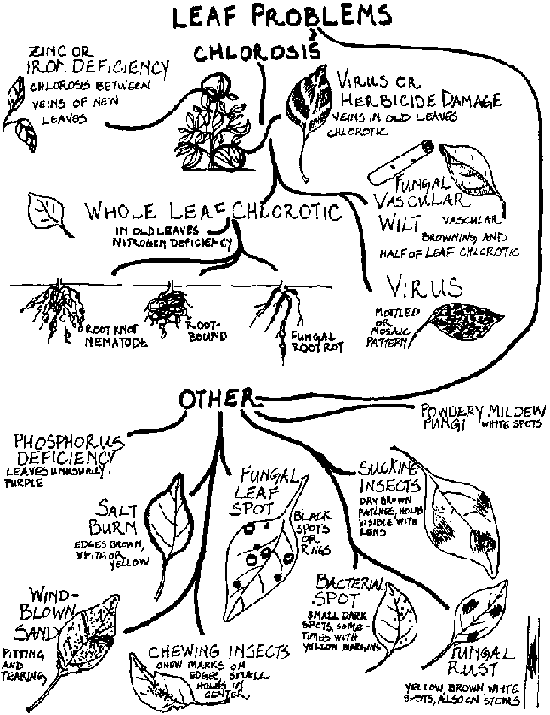 LEAF PROBLEMS
CHLOROSIS
ZINC OR
IRON DEFICIENCY
CHLOROSIS BETWEEN
VEINS OF NEW
LEAVES
VIRUS OR
HERBICIDE DAMAGE
VEINS IN OLD LEAVES
CHLOROTIC
FUNGAL
VASCULAR
WILT VASCULAR
BROWNING AND
HALF OF LEAF CHLOROTIC
WHOLE LEAF CHLOROTIC
IN OLD LEAVES
NITROGEN DEFICIENCY
VIRUS
MOTTLED
OR
MOSAIC
PATTERN
ROOT KNOT
NEMATODE
ROOT-
BOUND
FUNGAL
ROOT ROT
OTHER
POWDERY MILDEW
FUNGI WHITE SPOTS
PHOSPHORUS
DEFICIENCY
LEAVES UNUSUALLY
PURPLE
SALT
BURN
EDGES BROWN,
WHITE OR
YELLOW
FUNGAL
LEAF
SPOT
BLACK
SPOTS
OR
RINGS
SUCKING
INSECTS
DRY BROWN
PATCHES, HOLES
VISIBLE WITH
LENS
WIND-
BLOWN
SAND
PITTING
AND
TEARING
CHEWING INSECTS
CHEW MARKS ON
EDGES, SMALL
HOLES IN
CENTER
BACTERIAL
SPOT
SMALL DARK
SPOTS, SOME
TIMES WITH
YELLOW MARGINS
FUNGAL
RUST
YELLOW, BROWN WHITE
SPOTS, ALSO ON STEMS